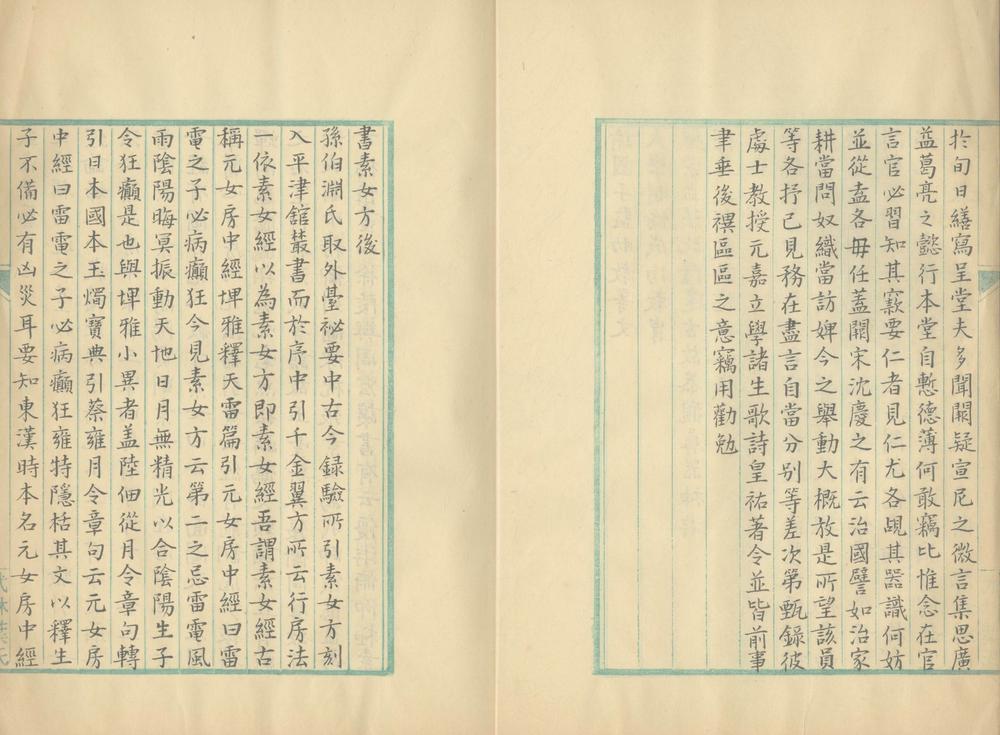 扵旬日繕寫呈堂夫多聞闕疑宣尼之微言集思廣
益葛亮之懿行本堂自慙德薄何敢竊比惟念在官
言官必習知其窾要仁者見仁尤各覘其器識何妨
並從盍各毋任蓋闕宋沈慶之有云治國譬如治家
耕當問奴織當訪婢今之舉動大概放是所望該員
等各抒己見務在盡言自當分别等差次第甄錄彼
處士教授元嘉立學諸生歌詩皇祐著令並皆前事
聿垂後禩區區之意竊用勸勉
書素女方後
孫伯淵氏取外臺祕要中古今録驗所引素女方刻
入平津館叢書而於序中引千金翼方所云行房法
一依素女經以為素女方即素女經吾謂素女經古
稱元女房中經埤雅釋天雷篇引元女房中經曰雷
電之子必病癲狂今見素女方云第二之忌雷電風
雨陰陽晦冥振動天地日月無精光以合陰陽生子
令狂癲是也與埤雅小異者盖陸佃從月令章句轉
引日本國本玉燭寶典引蔡雍月令章句云元女房
中經曰雷電之子必病癲狂雍特隱栝其文以釋生
子不備必有凶災耳要知東漢時本名元女房中經